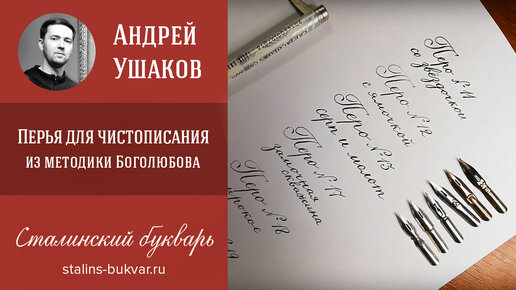 Андрей
Ушаков
Перья для чистописания
из методики Боголюбова
Сталинский букварь
stalins-bukvar.ru
Перо № 11
со звёздочкой
Перо № 12
с ямочкой
Перо № 13
серп и молот
Перо № 17
замочная
скважина
Перо № 18
широкое